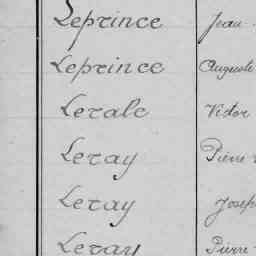 Leprince Jean
Leprince Auguste
Lerale Victor
Leray Pierre
Leray Josep
Leray Pierre